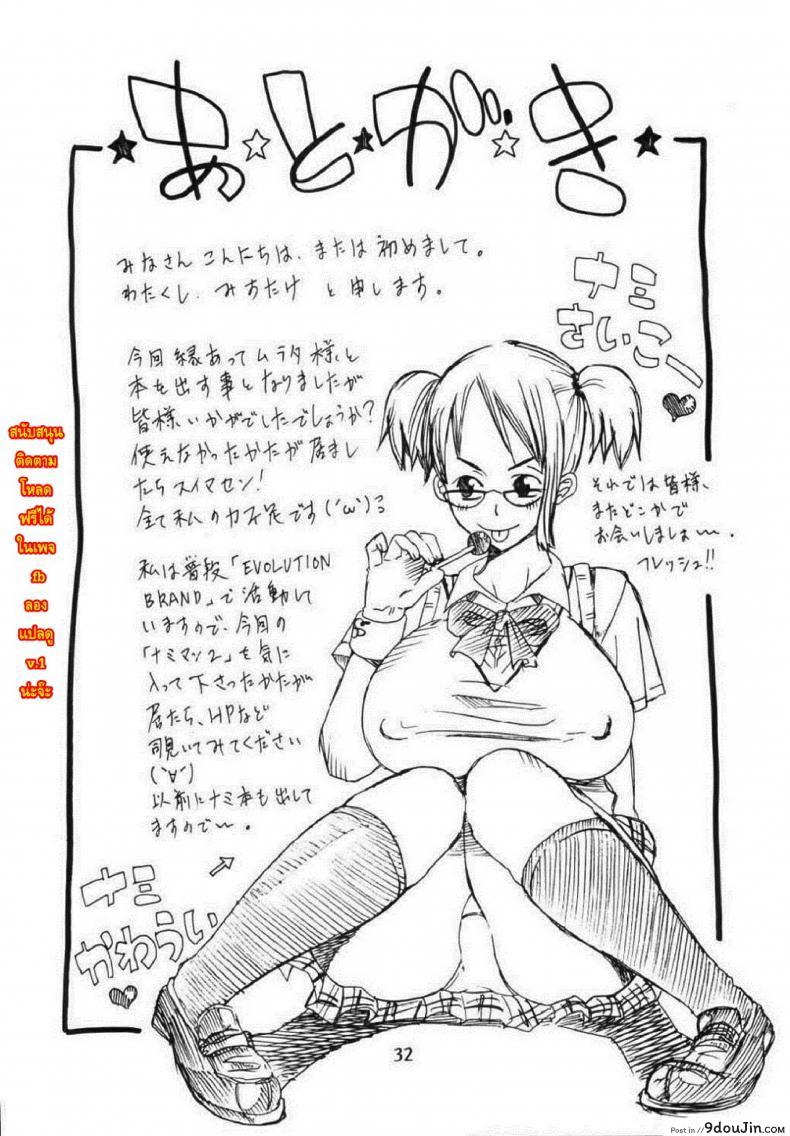 あとがき
みなさん こんにちは、または初めまして。
わたくし、みすたけ と申します。
今回縁あってムラタ様と
本を出す事となりましたが
皆様いかがでしたでしょうか?
使えなかったかたが居まし
たらスイマセン!
全て私のカ不足です('ω')
私は普段「EVOLUTION
BRAND」で活動して
いますので、今回の
「ナミマン2」を気に
入って下さったかたが
居たら、HPなど
覗いてみてください
(´∀`)
以前にナミ本も出して
ますので〜。
ナミ
さいこー
それでは皆様、
またどこかで
お会いしましょ〜。
フレッシュ!!
ナミ
かわうい
สนับสนุน
ติดตาม
โหลด
ฟรีได้
ในเพจ
fb
ลอง
แปลดู
v.1
น่ะจ๊ะ
32
Post in // 9douJin.com